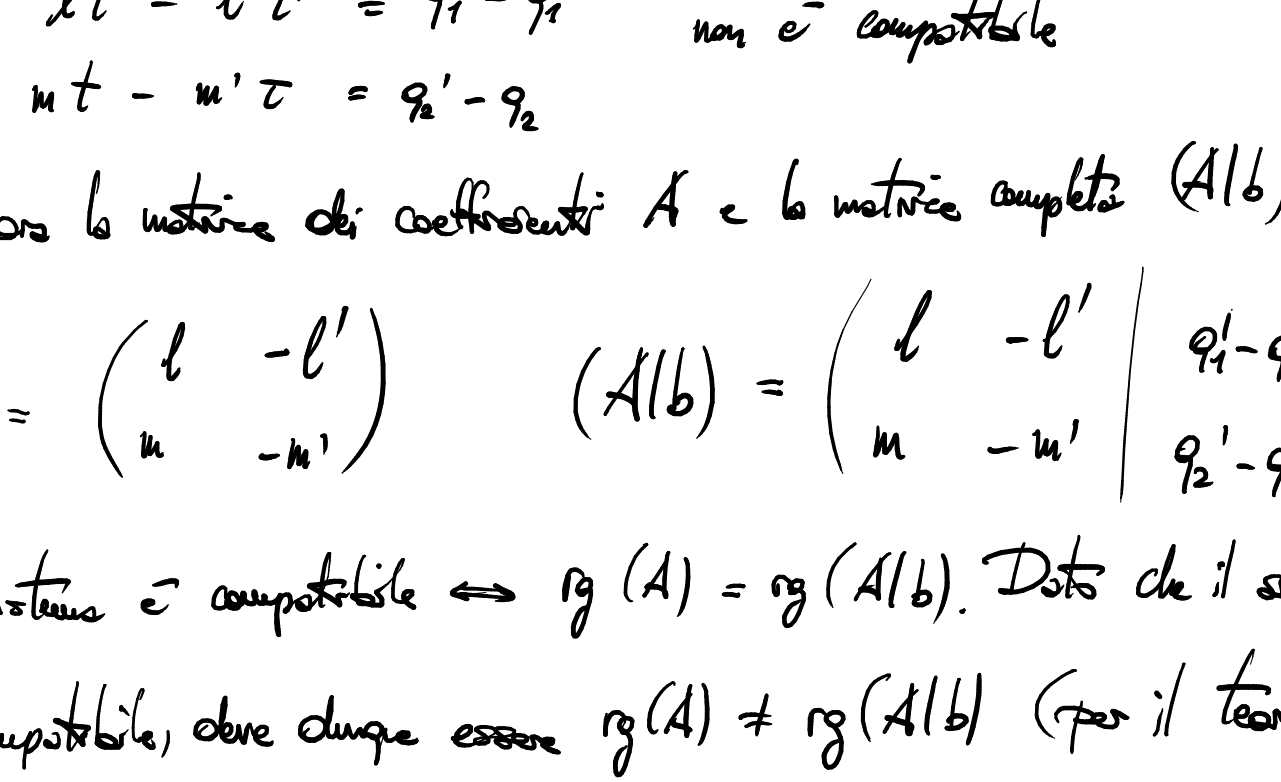 lt - l'τ = q₁' - q₁ non è compatibile
mt - m'τ = q₂' - q₂
la matrice dei coefficienti A e la matrice completa (A|b)
= ( l -l' ) (A|b) = ( l -l' | q₁' -
( m -m' ) ( m -m' | q₂' -
è compatibile ⟺ rg (A) = rg (A|b). Dato che il
deve dunque essere rg(A) ≠ rg (A|b) (per il